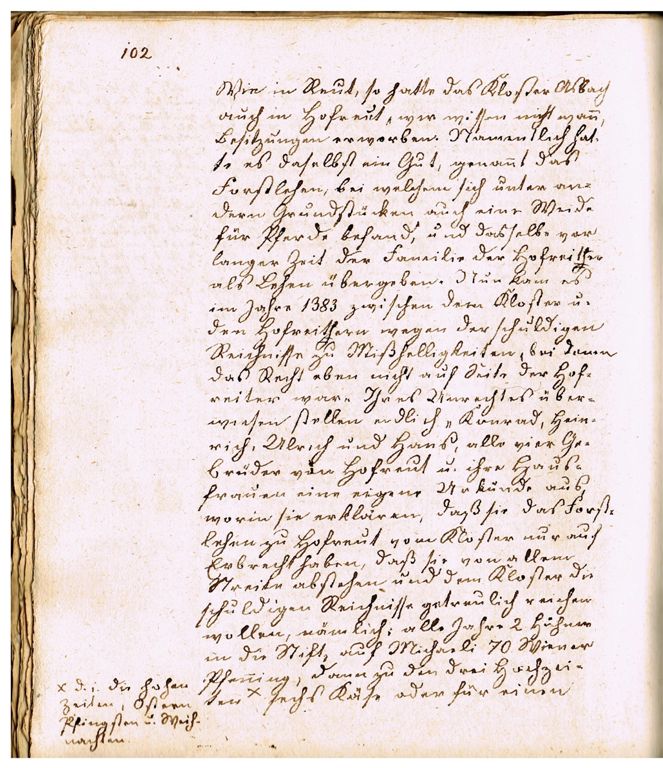 102
Wie in Reut, so hatte das Kloster Asbach
auch in Hofreut, wir wissen nicht wann,
Besitzungen erworben. Namentlich hat-
te es daselbst ein Gut, genannt das
Forstlehen, bei welchem sich unter an-
dern Grundstücken auch eine Weide
für Pferde befand, und dasselbe vor
langer Zeit der Familie der Hofreither
als Lehen übergeben. Nun kam es
im Jahre 1383 zwischen dem Kloster u.
den Hofreithern wegen der schuldigen
Reichnisse zu Mißhelligkeiten, bei denen
das Recht eben nicht auf Seite der Hof-
reiter war. Ihres Unrechtes über-
wiesen stellen endlich „Konrad, Hein-
rich, Ulrich und Hans, alle vier Ge-
brüder von Hofreut u. ihre Haus-
frauen eine eigene Urkunde aus,
worin sie erklären, daß sie das Forst-
lehen zu Hofreut vom Kloster nur auf
Erbrecht haben, daß sie von allem
Streite abstehen und dem Kloster die
schuldigen Reichnisse getreulich reichen
wollen, nämlich: alle Jahre 2 Hühner
in die Stift, auf Michaeli 70 Wiener
Pfening, dann zu den drei Hochzei-
ten x sechs Käse oder für einen
x d. i. die hohen
Zeiten, Ostern
Pfingsten u. Weih-
nachten.